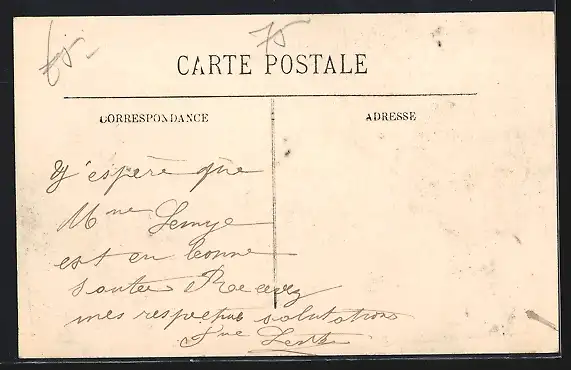 75
CARTE POSTALE
CORRESPONDANCE
ADRESSE
J'espère que
Mme
est en bonne
santée Recevez
mes respectus salutations